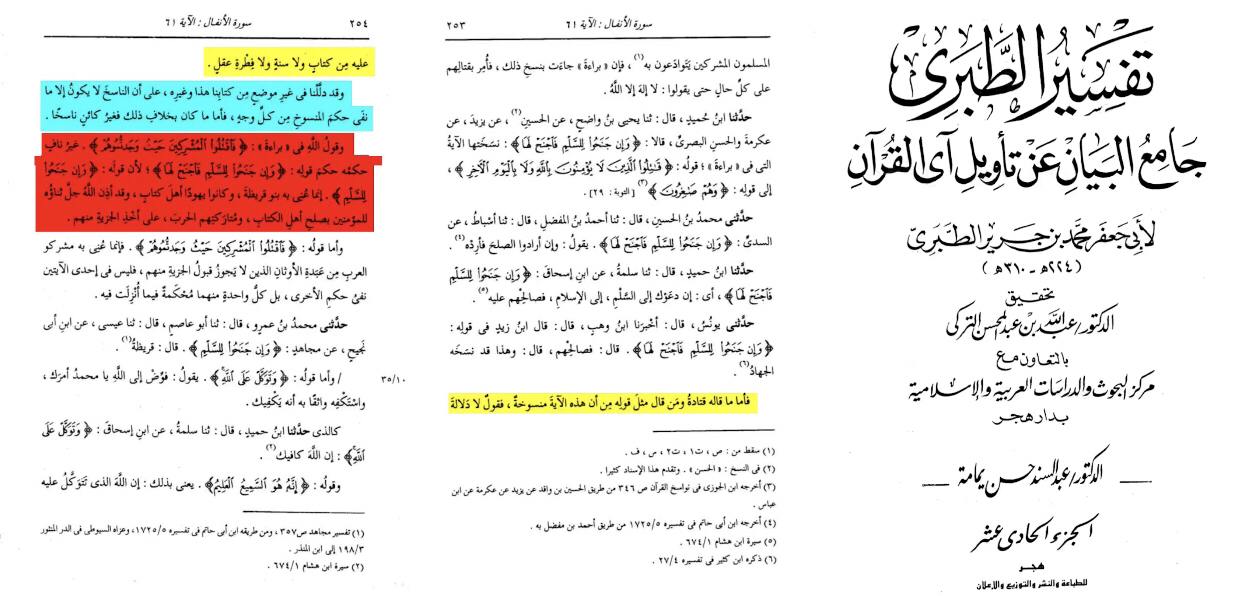 تفسير الطبري
جامع البيان عن تأويل آي القرآن
لأبي جعفر محمد بن جرير الطبري
(٢٢٤هـ - ٣١٠هـ)
تحقيق
الدكتور/ عبدالله بن عبدالمحسن التركي
بالتعاون مع
مركز البحوث والدراسات العربية والإسلامية
بدار هجر
الدكتور/ عبدالسند حسن يمامة
الجزء الحادي عشر
هجر
للطباعة والنشر والتوزيع والإعلان
سورة الأنفال : الآية ٦١
٢٥٣
المسلمون المشركين يَتوادَعون به(١) ، فإن « براءةَ » جاءت بنسخِ ذلك ، فأُمِر بقتالِهم
على كلِّ حالٍ حتى يقولوا : لا إلهَ إلا اللَّهُ .
حدَّثنا ابنُ حُميدٍ ، قال : ثنا يحيى بنُ واضحٍ ، عن الحسينِ(٢) ، عن يزيدَ ، عن
عكرمةَ والحسنِ البصريِّ ، قالا : ﴿ وَإِن جَنَحُوا۟ لِلسَّلْمِ فَٱجْنَحْ لَهَا ﴾ : نسَختها الآيةُ
التى فى « براءةَ » ؛ قولُه : ﴿ قَٰتِلُوا۟ ٱلَّذِينَ لَا يُؤْمِنُونَ بِٱللَّهِ وَلَا بِٱلْيَوْمِ ٱلْـَٔاخِرِ ﴾ ،
إلى قولِه : ﴿ وَهُمْ صَٰغِرُونَ ﴾(٣) [ التوبة : ٢٩] .
حدَّثنى محمدُ بنُ الحسينِ ، قال : ثنا أحمدُ بنُ المفضلِ ، قال : ثنا أسْباطُ ، عن
السدىِّ : ﴿ وَإِن جَنَحُوا۟ لِلسَّلْمِ فَٱجْنَحْ لَهَا ﴾ . يقولُ : وإن أرادوا الصلحَ فأَرِدْه(٤) .
حدَّثنا ابنُ حميدٍ ، قال : ثنا سلمةُ ، عن ابنِ إسحاقَ : ﴿ وَإِن جَنَحُوا۟ لِلسَّلْمِ
فَٱجْنَحْ لَهَا ﴾ ، أى : إن دعَوْك إلى السَّلْمِ ، إلى الإسلامِ ، فصالِحْهم عليه(٥) .
حدَّثنى يونُسُ ، قال : أخبَرنا ابنُ وهبٍ ، قال : قال ابنُ زيدٍ فى قولِه :
﴿ وَإِن جَنَحُوا۟ لِلسَّلْمِ فَٱجْنَحْ لَهَا ﴾ . قال : فصالِحْهم ، قال : وهذا قد نسَخَه
الجهادُ(٦) .
فأما ما قاله قتادةُ ومَن قال مثلَ قولِه مِن أن هذه الآيةَ منسوخةٌ ، فقولٌ لا دَلالةَ
(١) سقط من : ص ، ت١ ، ت٢ ، س ، ف .
(٢) فى النسخ : « الحسن » . وتقدم هذا الإسناد كثيرا .
(٣) أخرجه ابن الجوزى فى نواسخ القرآن ص ٣٤٦ من طريق الحسين بن واقد عن يزيد عن عكرمة عن ابن
عباس .
(٤) أخرجه ابن أبى حاتم فى تفسيره ١٧٢٥/٥ من طريق أحمد بن مفضل به .
(٥) سيرة ابن هشام ٦٧٤/١ .
(٦) ذكره ابن كثير فى تفسيره ٢٧/٤ .
٢٥٤
سورة الأنفال : الآية ٦١
عليه مِن كتابٍ ولا سنةٍ ولا فِطْرةِ عقلٍ .
وقد دلَّلْنا فى غيرِ موضعٍ مِن كتابِنا هذا وغيرِه ، على أن الناسخَ لا يكونُ إلا ما
نفَى حكمَ المنسوخِ مِن كلِّ وجهٍ ، فأما ما كان بخلافِ ذلك فغيرُ كائنٍ ناسخًا .
وقولُ اللَّهِ فى « براءةَ » : ﴿ فَٱقْتُلُوا۟ ٱلْمُشْرِكِينَ حَيْثُ وَجَدتُّمُوهُمْ ﴾ . غيرُ نافٍ
حكمُه حكمَ قولِه : ﴿ وَإِن جَنَحُوا۟ لِلسَّلْمِ فَٱجْنَحْ لَهَا ﴾ ؛ لأن قولَه : ﴿ وَإِن جَنَحُوا۟
لِلسَّلْمِ ﴾ . إنما عُنِى به بنو قريظةَ ، وكانوا يهودًا أهلَ كتابٍ ، وقد أَذِن اللَّهُ جلَّ ثناؤُه
للمؤمنين بصلحِ أهلِ الكتابِ ، ومُتارَكتِهم الحربَ ، على أخْذِ الجزيةِ منهم .
وأما قولُه : ﴿ فَٱقْتُلُوا۟ ٱلْمُشْرِكِينَ حَيْثُ وَجَدتُّمُوهُمْ ﴾ . فإنما عُنِى به مشركو
العربِ مِن عَبَدةِ الأوثانِ الذين لا يَجوزُ قبولُ الجزيةِ منهم ، فليس فى إحدى الآيتين
نفىُ حكمِ الأخرى ، بل كلُّ واحدةٍ منهما مُحْكَمةٌ فيما أُنْزِلَت فيه .
حدَّثنى محمدُ بنُ عمرٍو ، قال : ثنا أبو عاصمٍ ، قال : ثنا عيسى ، عن ابنِ أبى
نَجيحٍ ، عن مجاهدٍ : ﴿ وَإِن جَنَحُوا۟ لِلسَّلْمِ ﴾ . قال : قريظةُ(١) .
٣٥/١٠
/ وأما قولُه : ﴿ وَتَوَكَّلْ عَلَى ٱللَّهِ ﴾ . يقولُ : فوِّضْ إلى اللَّهِ يا محمدُ أمرَك ،
واسْتَكْفِه واثقًا به أنه يَكْفِيك .
كالذى حدَّثنا ابنُ حميدٍ ، قال : ثنا سلمةُ ، عن ابنِ إسحاقَ : ﴿ وَتَوَكَّلْ عَلَى
ٱللَّهِ ﴾ : إن اللَّهَ كافيك(٢) .
وقولُه : ﴿ إِنَّهُۥ هُوَ ٱلسَّمِيعُ ٱلْعَلِيمُ ﴾ . يعنى بذلك : إن اللَّهَ الذى تَتَوَكَّلُ عليه
(١) تفسير مجاهد ص٣٥٧ ، ومن طريقه ابن أبى حاتم فى تفسيره ١٧٢٥/٥ ، وعزاه السيوطى فى الدر المنثور
١٩٨/٣ إلى ابن المنذر .
(٢) سيرة ابن هشام ٦٧٤/١ .